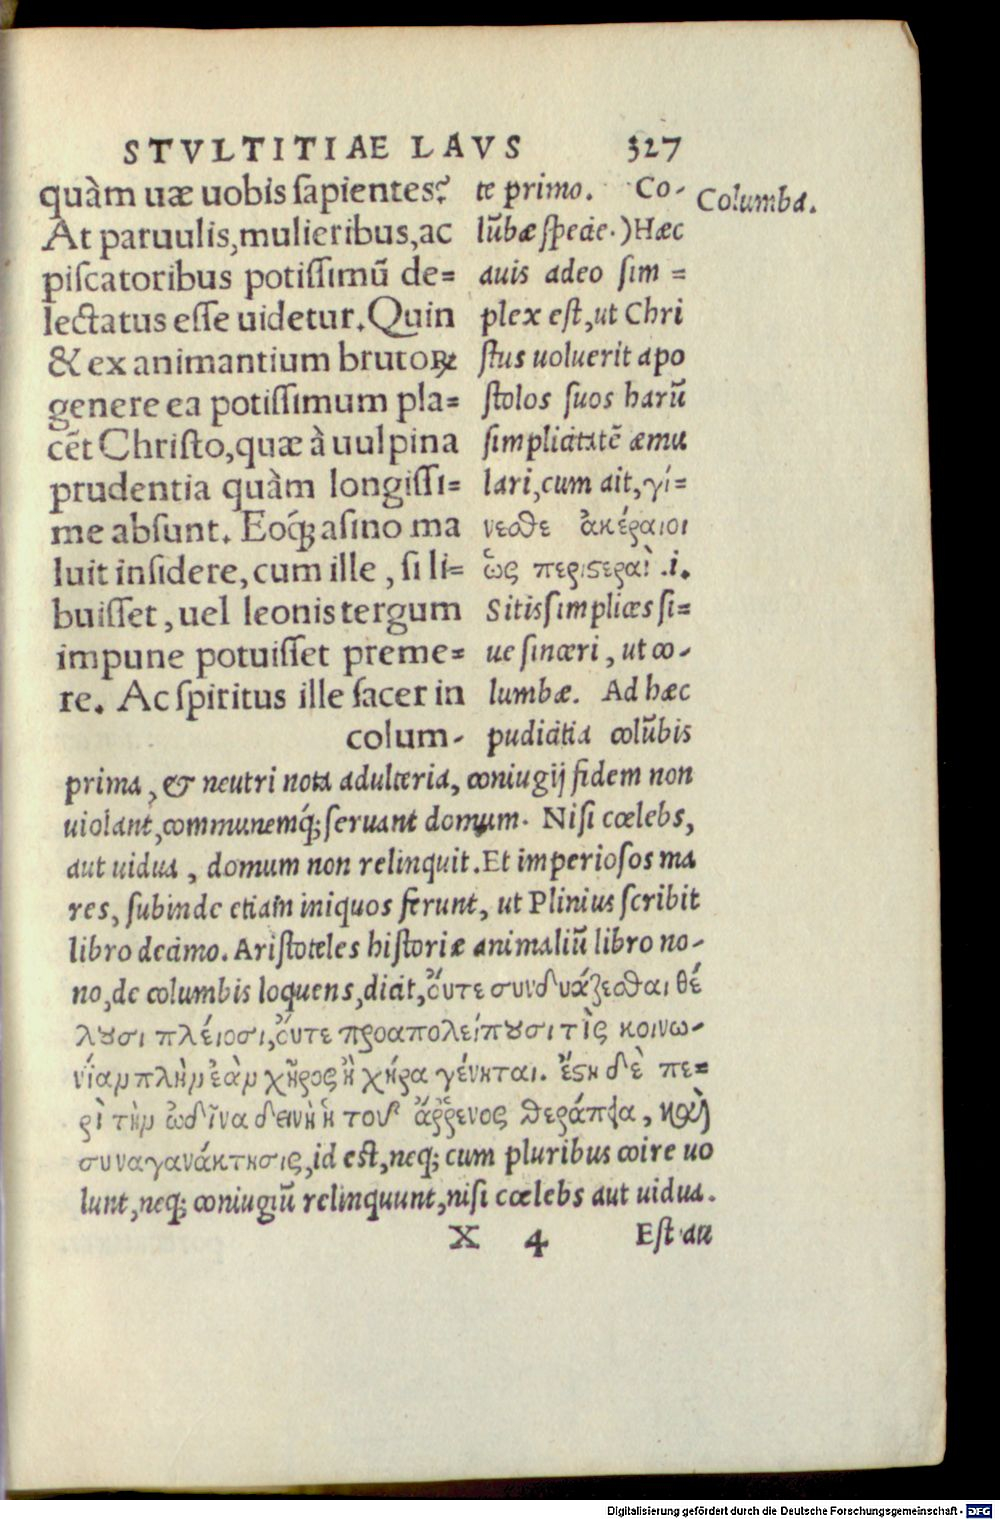 STVLTITIAE LAVS 327
quàm uæ uobis sapientes?
At paruulis, mulieribus, ac
piscatoribus potissimũ de=
lectatus esse uidetur. Quin
& ex animantium brutoꝝ
genere ea potissimum pla=
cẽt Christo, quæ à uulpina
prudentia quàm longissi=
me absunt. Eoq́ꝫ asino ma
luit insidere, cum ille, si li=
buisset, uel leonis tergum
impune potuisset preme=
re. Ac spiritus ille sacer in
colum-
te primo. Co-
lũbæ specie.) Hæc
auis adeo sim =
plex est, ut Chri
stus uoluerit apo
stolos suos harũ
simplicitatẽ æmu
lari, cum ait, γί=
νεσθε ἀκέραιοι
ὥς περιστεραὶ .i.
Sitis simplices si=
ue sinceri, ut co-
lumbæ. Ad hæc
pudicitia colũbis
Columba.
prima, & neutri nota adulteria, coniugij fidem non
uiolant, communemq́ꝫ seruant domum. Nisi cœlebs,
aut uidua, domum non relinquit. Et imperiosos ma
res, subinde etiam iniquos ferunt, ut Plinius scribit
libro decimo. Aristoteles historiæ animaliũ libro no-
no, de columbis loquens, dicit, ὄυτε συνδυάζεσθαι θέ
λουσι πλέιοσι, ὄυτε προαπολείπουσι τὶς κοινω-
νίαν πλὴν ἐὰν χῆρος ἢ χήρα γένηται. ἔστι δὲ πε=
ρὶ τὴν ὠδῖνα δεινὴ ἡ τοῦ ἄῤῥενος θεράπεια, καὶ
συναγανάκτησις, id est, neqꝫ cum pluribus coire uo
lunt, neqꝫ coniugiũ relinquunt, nisi cœlebs aut uidua.
X 4 Est au
Digitalisierung gefördert durch die Deutsche Forschungsgemeinschaft - DFG